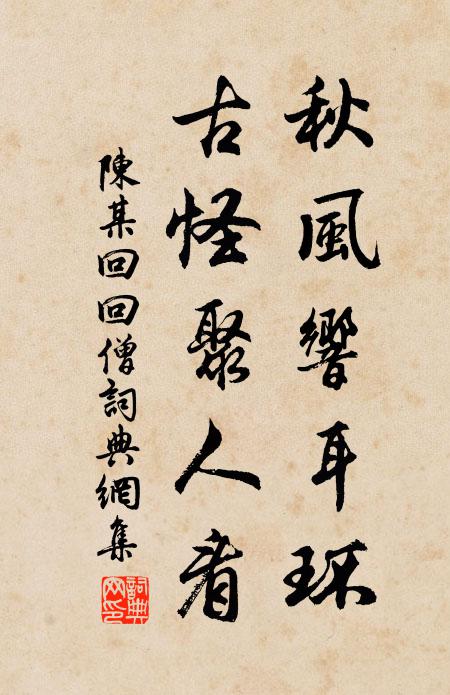 秋風響耳环
古怪聚人看
陳某回回僧詞典網集
詞典
网印